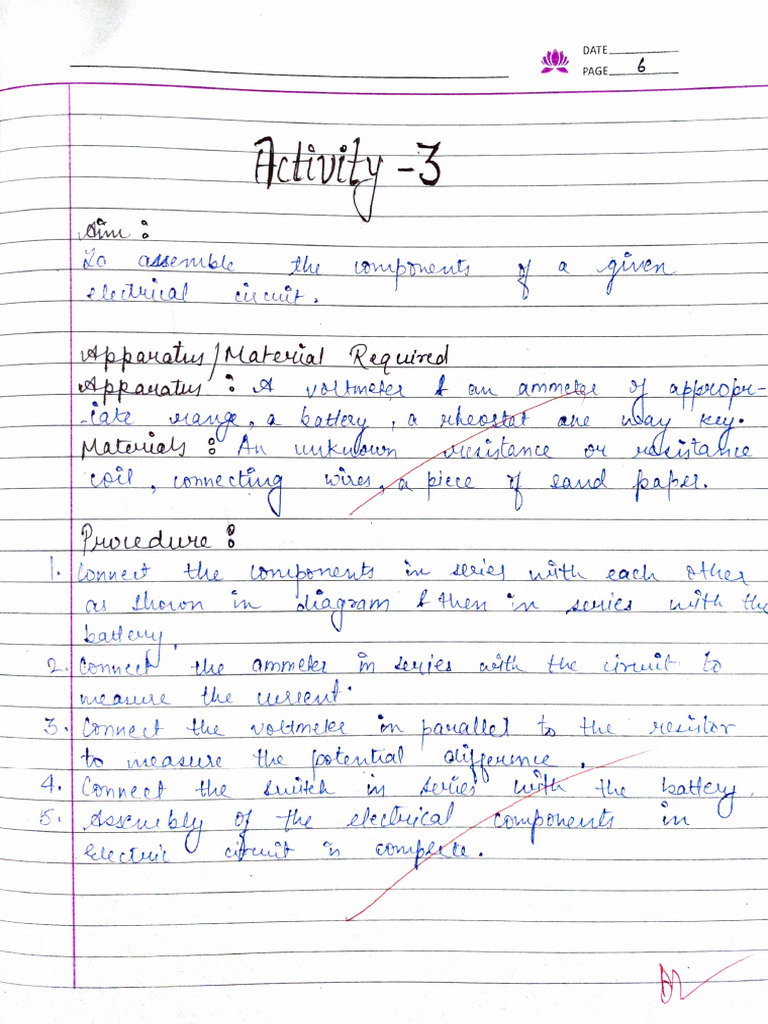 DATE
PAGE 6
Activity - 3
Aim :
To assemble the components of a given
electrical circuit.
Apparatus / Material Required
Apparatus : A voltmeter & an ammeter of appropr-
-iate range, a battery, a rheostat one way key.
Materials : An unknown resistance or resistance
coil, connecting wires, a piece of sand paper.
Procedure :
1. Connect the components in series with each other
as shown in diagram & then in series with the
battery.
2. Connect the ammeter in series with the circuit to
measure the current.
3. Connect the voltmeter in parallel to the resistor
to measure the potential difference.
4. Connect the switch in series with the battery.
5. Assembly of the electrical components in
electric circuit is complete.